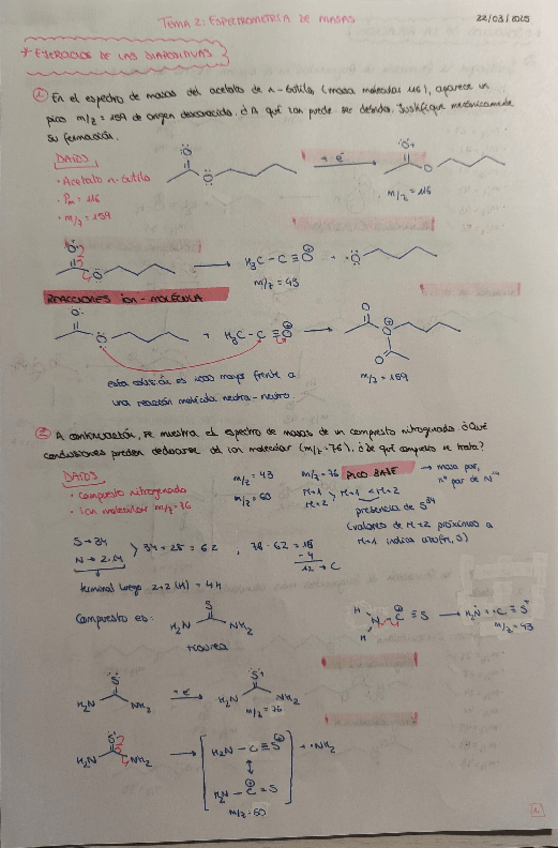 TEMA 2: ESPECTROMETRÍA DE MASAS
22/03/2025
* EJERCICIOS DE LAS DIAPOSITIVAS
① En el espectro de masas del acetato de n-butilo (masa molecular 116), aparece un
pico m/z = 159 de origen desconocido. ¿A qué ion puede ser debido. Justifique mecánicamente
su formación.
DATOS
• Acetato n-butilo
• Pm = 116
• m/z = 159
- e⁻
m/z = 116
H₃C - C ≡ O
m/z = 43
REACCIONES ion - MOLÉCULA
+ H₃C - C ≡ O
m/z = 159
esta colisión es mayor frente a
una reacción molécula neutra-neutro.
② A continuación, se muestra el espectro de masas de un compuesto nitrogenado. ¿Qué
conclusiones pueden deducirse del ion molecular (m/z = 76), ¿De qué compuesto se trata?
DATOS
• compuesto nitrogenado
• ion molecular m/z = 76
m/z = 43
m/z = 60
m/z = 76 PICO BASE → masa par,
nº par de N
M+1 y M+1 < M+2
M+2
presencia de S³⁴
(valores de M+2 próximos a
M+1 indica azufre, S)
S → 34
N → 2·14
34 + 28 = 62 , 78 - 62 = 16
- 4
12 → C
terminal luego 2+2 (H) = 4H
Compuesto es:
S
H₂N NH₂
tiourea
H
N C ≡ S
H
m/z = 43
S
H₂N NH₂
- e⁻
S
H₂N NH₂
m/z = 76
S
H₂N NH₂
H₂N - C ≡ S
+ ·NH₂
H₂N - C = S
m/z = 60
1.